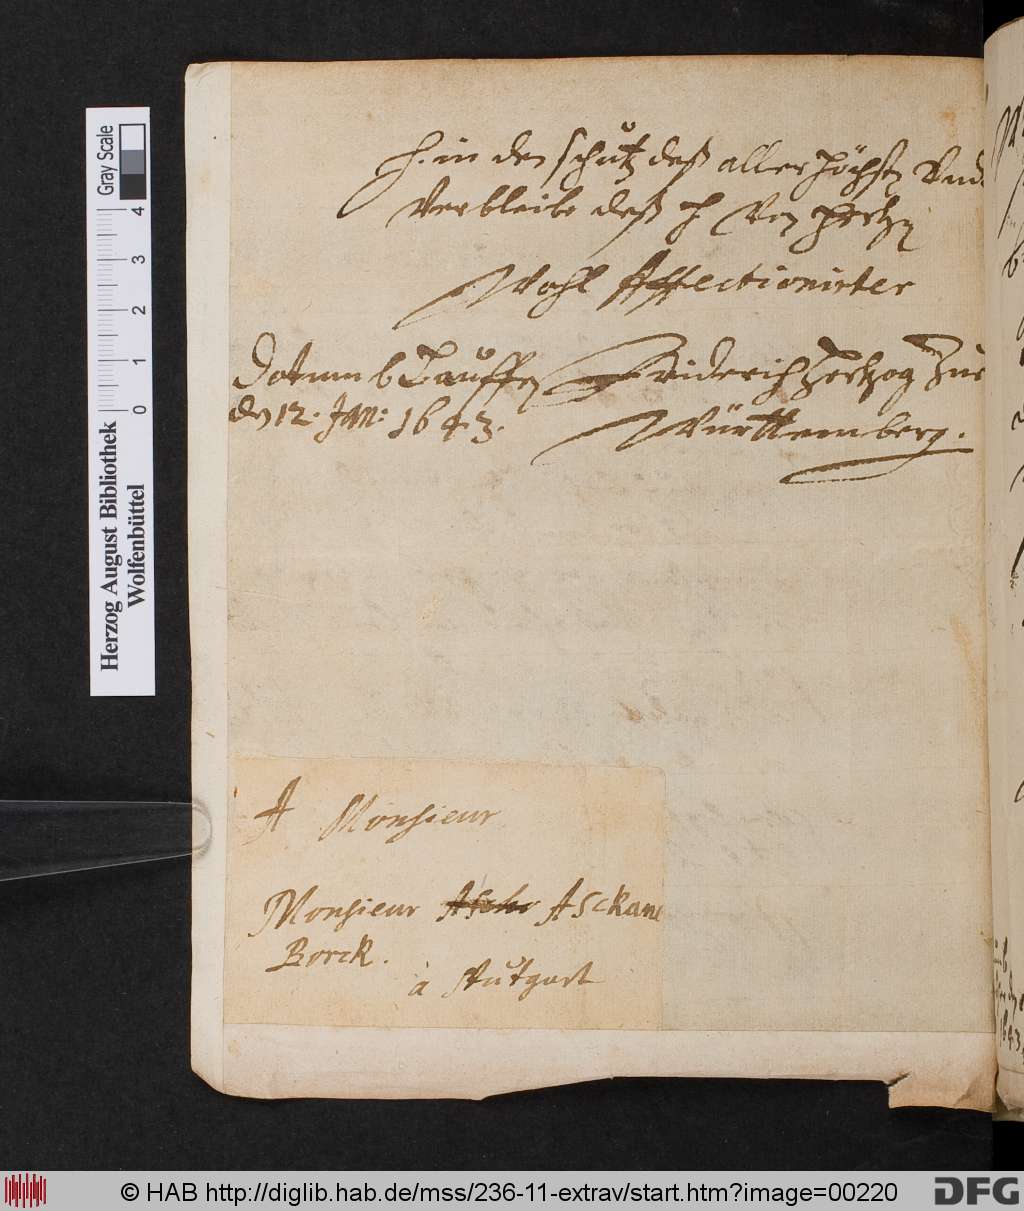 H. in den schůtz deß aller höchsten Vnd
Verbleibe deß H Von hertzen
Wohl Affectionirter
Friderich Hertzog Zue
Württemberg.
Datum Lauffen
den 12. Jan: 1643.
A Monsieur
Monsieur Ascho Askane
Borck.
à Stutgart
Gray Scale
0 1 2 3 4
Herzog August Bibliothek
Wolfenbüttel
© HAB http://diglib.hab.de/mss/236-11-extrav/start.htm?image=00220
DFG